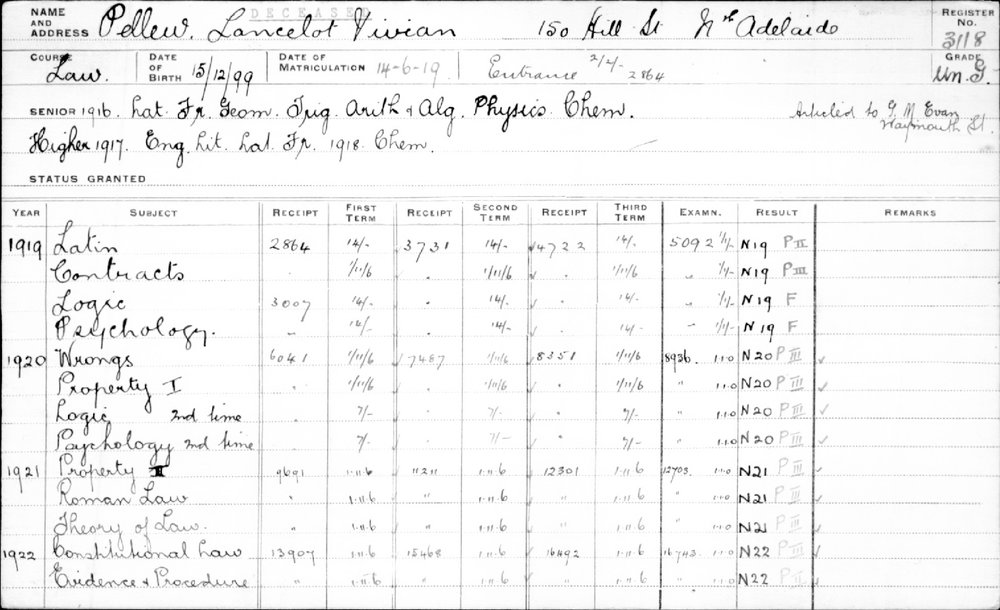 DECEASED
NAME AND ADDRESS Pellew. Lancelot Vivian 150 Hill St Nth Adelaide REGISTER No. 3118
COURSE Law. DATE OF BIRTH 15/12/99 DATE OF MATRICULATION 14-6-19 Entrance 2/2/- 2864 GRADE Un. G.
SENIOR 1916. Lat. Fr. Geom. Trig. Arith & Alg. Physics Chem. Articled to G. M. Evan
Waymouth St.
Higher 1917. Eng. Lit. Lat. Fr. 1918. Chem.
STATUS GRANTED
YEAR SUBJECT RECEIPT FIRST TERM RECEIPT SECOND TERM RECEIPT THIRD TERM EXAMN. RESULT REMARKS
1919 Latin 2864 14/- 3731 14/- 4722 14/- 5092 1/1/- N19 P III
Contracts . 1/11/6 . 1/11/6 . 1/11/6 " 1/1/- N19 P III
Logic 3007 14/- . 14/- . 14/- " 1/1/- N19 F
Psychology. " 14/- . 14/- . 14/- " 1/1/- N19 F
1920 Wrongs 6041 1/11/6 7487 1/11/6 8351 1/11/6 8936. 1.1.0 N20 P III ✓
Property I . 1/11/6 . 1/11/6 . 1/11/6 " 1.1.0 N20 P III ✓
Logic 2nd time . 7/- . 7/- . 7/- " 1.1.0 N20 P III ✓
Psychology 2nd time . 7/- . 7/- . 7/- " 1.1.0 N20 P III ✓
1921 Property II 9691 1.11.6 11211 1.11.6 12301 1.11.6 12703. 1.1.0 N21 P III ✓
Roman Law " 1.11.6 " 1.11.6 " 1.11.6 " 1.1.0 N21 P III ✓
Theory of Law. " 1.11.6 " 1.11.6 " 1.11.6 " 1.1.0 N21 P III ✓
1922 Constitutional Law 13907 1.11.6 15468 1.11.6 16492 1.11.6 16743. 1.1.0 N22 P III ✓
Evidence & Procedure " 1.11.6 " 1.11.6 " 1.11.6 " 1.1.0 N22 P II ✓